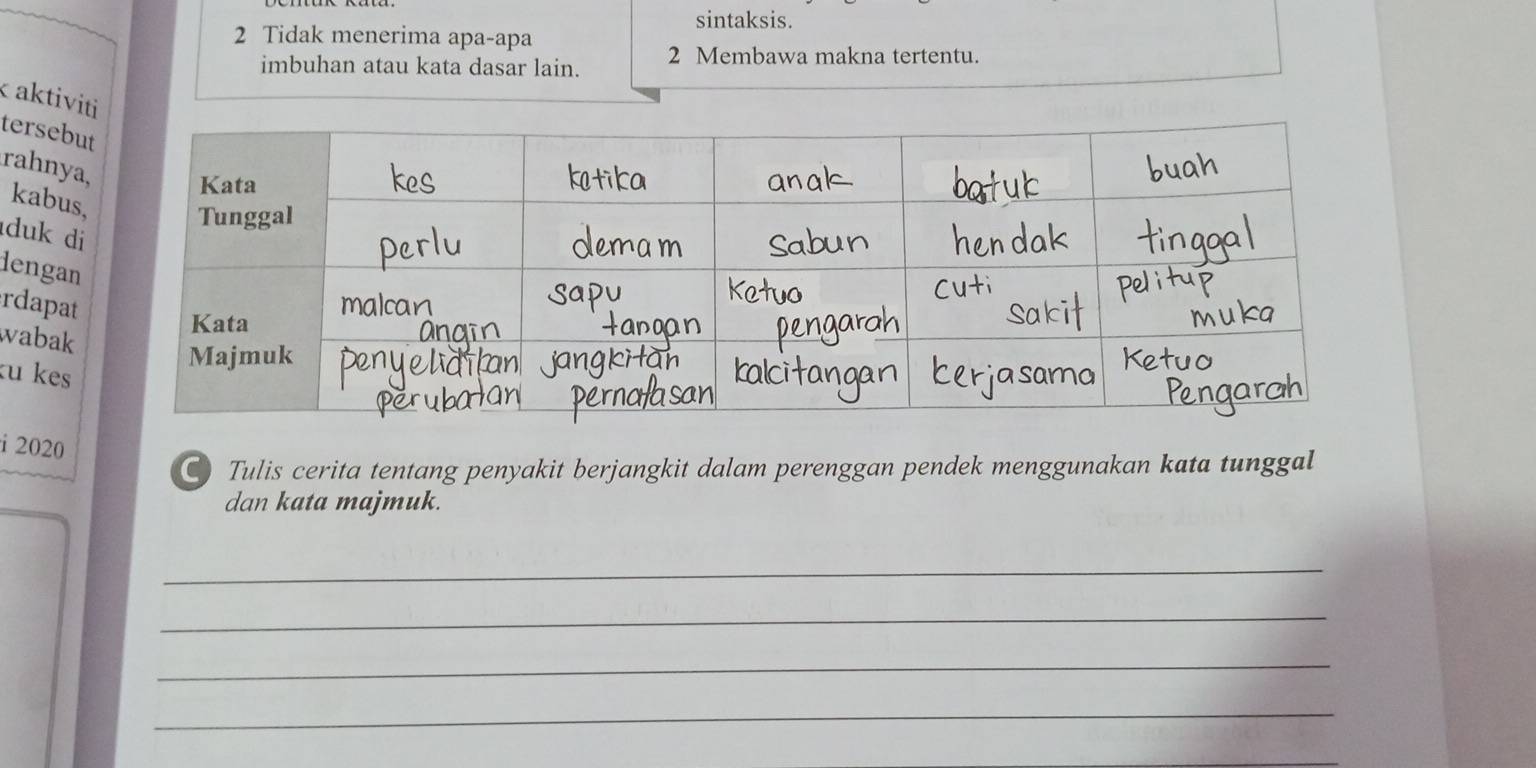 2 Tidak menerima apa-apa
imbuhan atau kata dasar lain.
sintaksis.
2 Membawa makna tertentu.
aktiviti
tersebut
rahnya,
kabus,
duk di
dengan
rdapat
wabak
u kes
i 2020
Kata
Tunggal
kes ketika anak batuk buah
perlu demam sabun hendak tinggal
Kata
Majmuk
makan
angin
sapu
tangan
Ketua
pengarah
cuti
sakit
pelitup
muka
penyelidikan
perubatan
jangkitan
pernafasan
kakitangan
kerjasama
Ketua
Pengarah
C Tulis cerita tentang penyakit berjangkit dalam perenggan pendek menggunakan kata tunggal
dan kata majmuk.